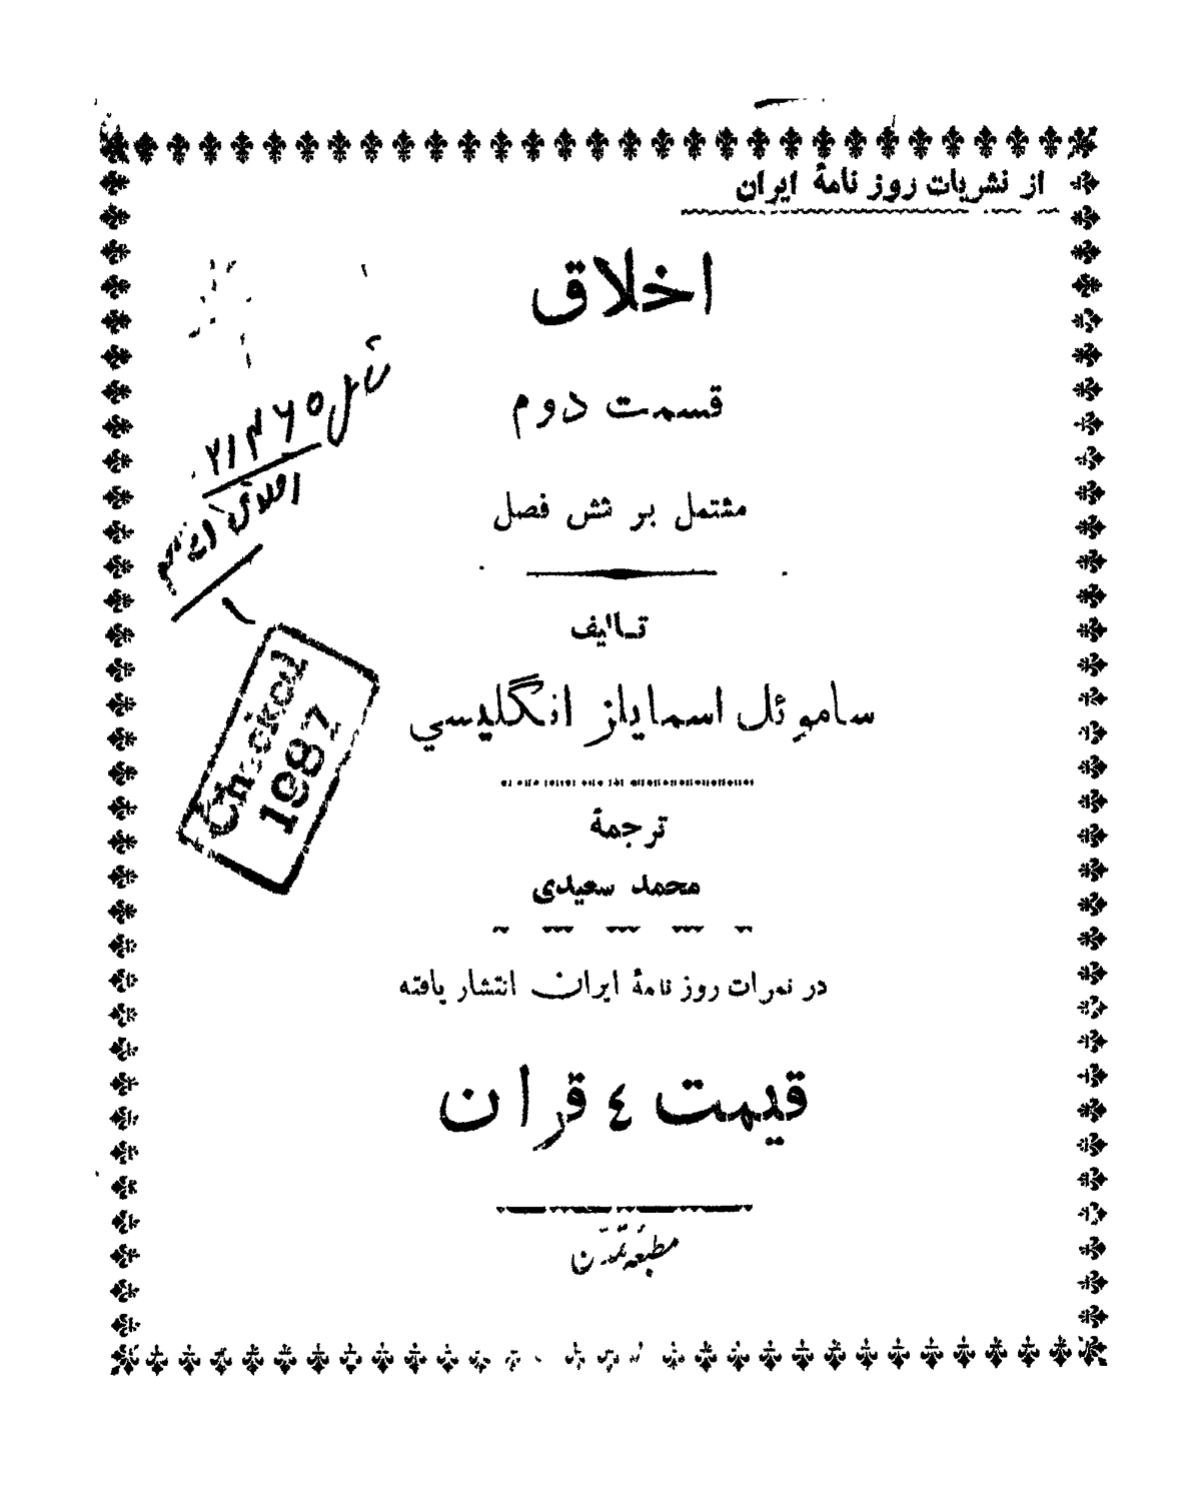 از نشریات روز نامهٔ ایران
اخلاق
قسمت دوم
مشتمل بر شش فصل
تـالیف
ساموئل اسمایلز انگلیسي
ترجمهٔ
محمد سعیدی
در نمرات روز نامهٔ ایران انتشار یافته
قیمت ٤ قران
مطبعه تمدّن
Checked
1987